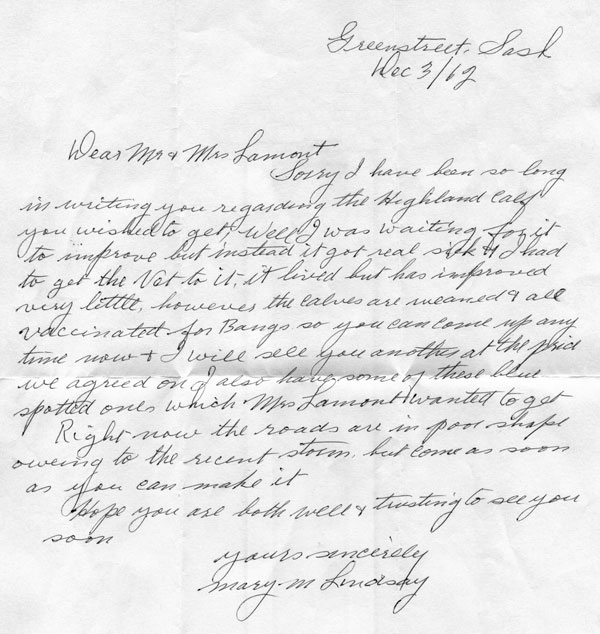 Greenstreet, Sask
Dec 3/62
Dear Mr & Mrs Lamont
Sorry I have been so long
in writing you regarding the Highland Calf
you wished to get, Well I was waiting for it
to improve but instead it got real sick & I had
to get the Vet to it, it lived but has improved
very little, however the calves are weaned & all
vaccinated for Bangs so you can come up any
time now & I will sell you another at the price
we agreed on I also have some of these blue
spotted ones which Mrs Lamont wanted to get
Right now the roads are in poor shape
oweing to the recent storm, but come as soon
as you can make it
Hope you are both well & trusting to see you
soon
yours sincirely
Mary M Lindsay